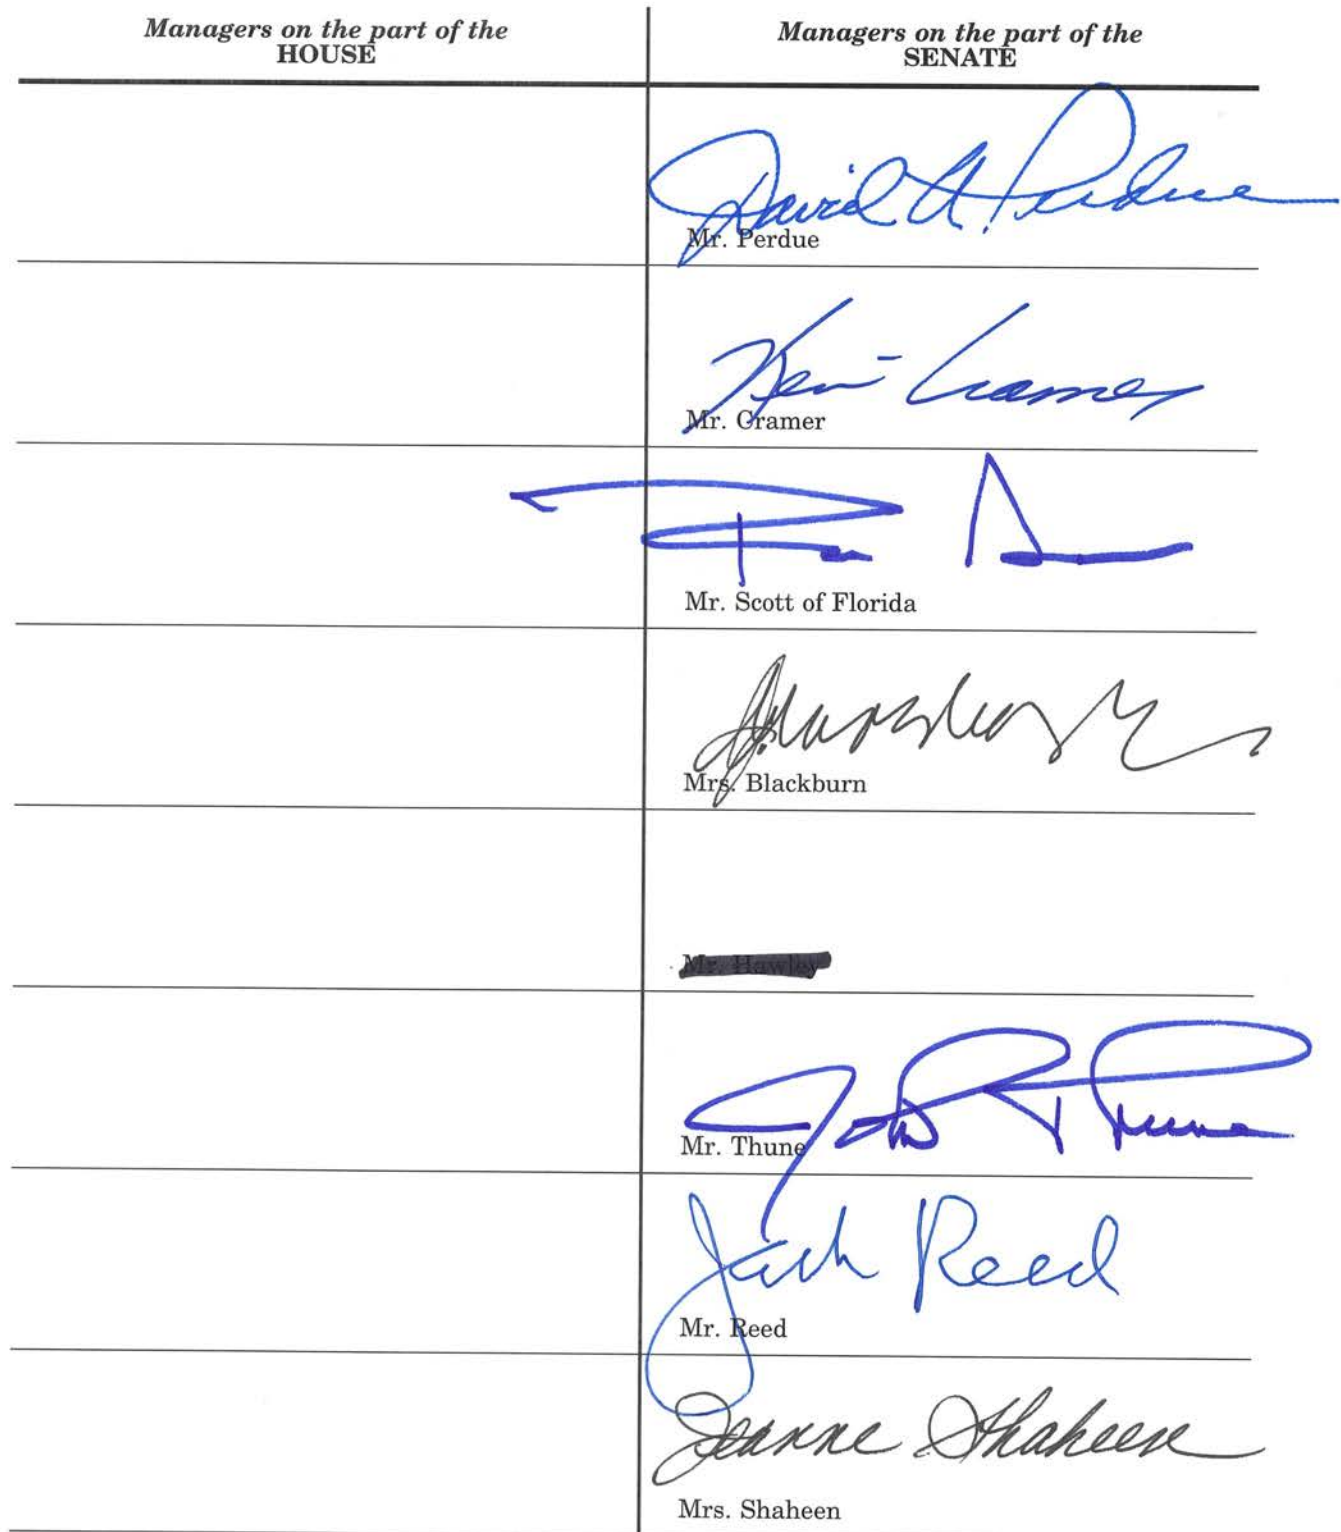 Managers on the part of the
HOUSE
Managers on the part of the
SENATE
David A. Perdue
Mr. Perdue
Kevin Cramer
Mr. Cramer
Mr. Scott of Florida
Mrs. Blackburn
Mr. Hawley
John R Thune
Mr. Thune
Jack Reed
Mr. Reed
Jeanne Shaheen
Mrs. Shaheen